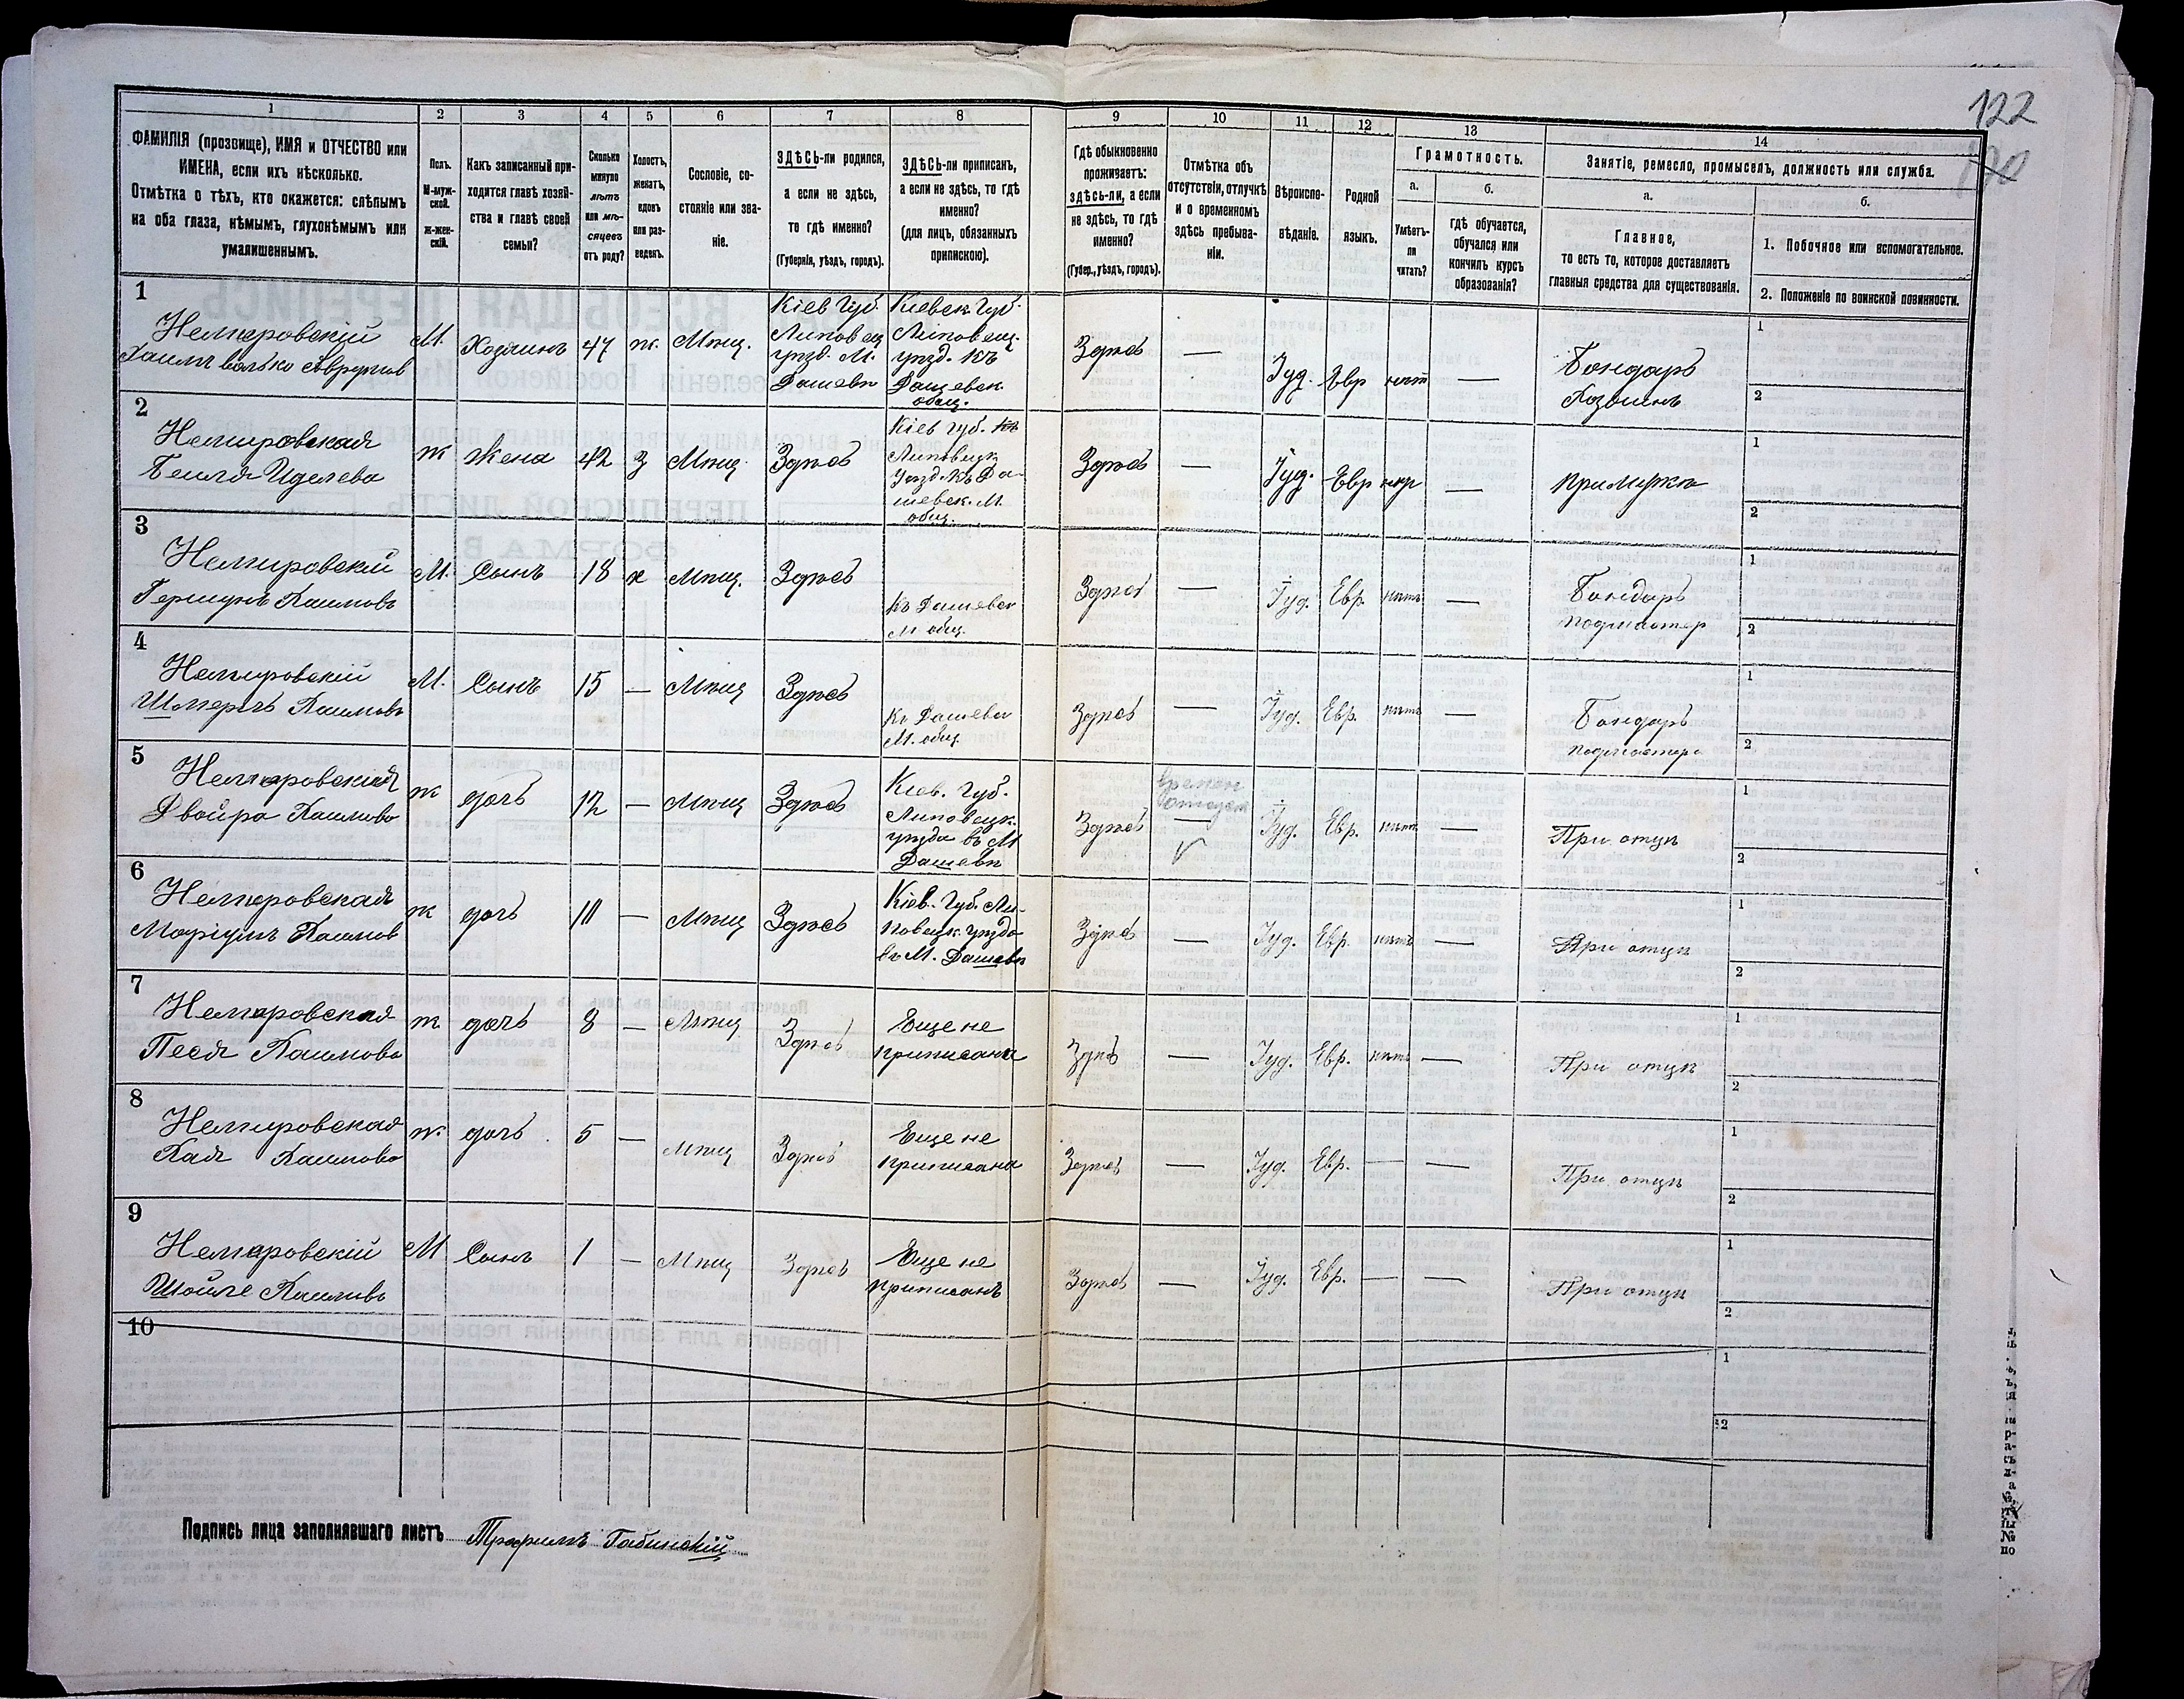 122
1
2
3
4
5
6
7
8
9
10
11
12
13
14
ФАМИЛІЯ (прозвище), ИМЯ и ОТЧЕСТВО или
ИМЕНА, если ихъ нѣсколько.
Отмѣтка о тѣхъ, кто окажется: слѣпымъ
на оба глаза, нѣмымъ, глухонѣмымъ или
умалишеннымъ.
Полъ.
М-муж-
ской.
Ж-жен-
скій.
Какъ записанный при-
ходится главѣ хозяй-
ства и главѣ своей
семьи?
Сколько
минуло
лѣтъ
или мѣ-
сяцевъ
отъ роду?
Холостъ,
женатъ,
вдовъ
или раз-
веденъ.
Сословіе, со-
стояніе или зва-
ніе.
ЗДѢСЬ-ли родился,
а если не здѣсь,
то гдѣ именно?
(Губернія, уѣздъ, городъ).
ЗДѢСЬ-ли приписанъ,
а если не здѣсь, то гдѣ
именно?
(для лицъ, обязанныхъ
припискою).
Гдѣ обыкновенно
проживаетъ:
здѣсь-ли, а если
не здѣсь, то гдѣ
именно?
(Губер., уѣздъ, городъ).
Отмѣтка объ
отсутствіи, отлучкѣ
и о временномъ
здѣсь пребыва-
ніи.
Вѣроиспо-
вѣданіе.
Родной
языкъ.
Грамотность.
а.
Умѣетъ-
ли
читать?
б.
гдѣ обучается,
обучался или
кончилъ курсъ
образованія?
Занятіе, ремесло, промыселъ, должность или служба.
а.
Главное,
то есть то, которое доставляетъ
главныя средства для существованія.
б.
1. Побочное или вспомогательное.
2. Положеніе по воинской повинности.
1
Немировскій
Хаимъ Волько
М.
Хозяинъ
47
ж.
Мѣщ.
Кіев Губ.
Липовец
уѣзд. М.
Дашевѣ
Кіевск Губ.
Липовец.
уѣзд. Къ
Дашевск.
общ.
Здѣсь
—
Іуд.
Евр
нѣт
—
Бондарь
Хозяинъ
1
2
2
Немировская
Бейля Иделева
ж
Жена
42
з
Мѣщ.
Здѣсь
Кіев Губ.
Липовецк
Уѣзд. Къ Да-
шевск. М.
общ.
Здѣсь
—
Іуд.
Евр
—
при мужѣ
1
2
3
Немировскій
Гершунъ Хаимовъ
М.
Сынъ
18
х
Мѣщ.
Здѣсь
Къ Дашевск
М общ.
Здѣсь
—
Іуд.
Евр.
нѣтъ
—
Бондарь
подмастер
1
2
4
Немировскій
Хаимовъ
М.
Сынъ
15
—
Мѣщ
Здѣсь
Къ Дашевск
М. общ
Здѣсь
—
Іуд.
Евр.
нѣтъ
—
Бондарь
подмастеръ
1
2
5
Немировская
Двойра Хаимова
ж
дочь
12
—
Мѣщ
Здѣсь
Кіев. Губ.
Липовецк.
уѣзда въ М
Дашевѣ
Здѣсь
—
Іуд.
Евр.
нѣтъ
—
При отцѣ
1
2
6
Немировская
Маріумъ Хаимов
ж
дочь
11
—
Мѣщ
Здѣсь
Кіев. Губ. Ли-
повецк уѣзда
въ М. Дашевѣ
Здѣсь
—
Іуд.
Евр.
нѣтъ
—
При отцѣ
1
2
7
Немировская
Песя Хаимова
ж
дочь
8
—
Мѣщ
Здѣсь
Еще не
приписана
Здѣсь
—
Іуд.
Евр.
нѣтъ
—
При отцѣ
1
2
8
Немировская
Хая Хаимова
ж.
дочь
5
—
Мѣщ
Здѣсь
Еще не
приписана
Здѣсь
—
Іуд.
Евр.
—
—
При отцѣ
1
2
9
Немировскій
Шойле Хаимовъ
М
Сынъ
1
—
Мѣщ
Здѣсь
Еще не
приписанъ
Здѣсь
—
Іуд.
Евр.
—
—
При отцѣ
1
2
10
1
2
Подпись лица заполнявшаго листъ Трофимъ Габинскій